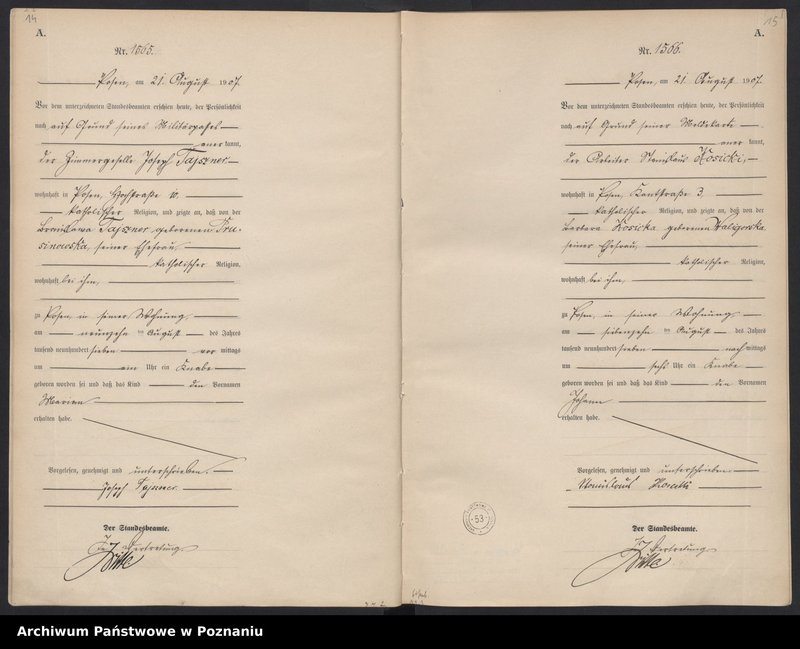 14
A.
Nr. 1565.
Posen, am 21. August 1907.
Vor dem unterzeichneten Standesbeamten erschien heute, der Persönlichkeit
nach auf Grund seines Militärpasses
anerkannt,
der Zimmergeselle Joseph Tajszner,
wohnhaft in Posen, Hochstraße 10.
katholischer Religion, und zeigte an, daß von der
Bronislawa Tajszner geborenen Pru-
sinowska, seiner Ehefrau,
katholischer Religion,
wohnhaft bei ihm,
zu Posen, in seiner Wohnung,
am neunzehn ten August des Jahres
tausend neunhundert sieben vor mittags
um ein Uhr ein Knabe
geboren worden sei und daß das Kind den Vornamen
Marian
erhalten habe.
Vorgelesen, genehmigt und unterschrieben.
Joseph Tajszner
Der Standesbeamte.
In Vertretung
Witte
15
A.
Nr. 1566.
Posen, am 21. August 1907.
Vor dem unterzeichneten Standesbeamten erschien heute, der Persönlichkeit
nach auf Grund seiner Meldekarte
anerkannt,
der Arbeiter Stanislaus Kosicki,
wohnhaft in Posen, Kantstraße 3,
katholischer Religion, und zeigte an, daß von der
Barbara Kosicka geborenen Waligorska
seiner Ehefrau,
katholischer Religion,
wohnhaft bei ihm,
zu Posen, in seiner Wohnung
am siebenzehn ten August des Jahres
tausend neunhundert sieben nach mittags
um sechs Uhr ein Knabe
geboren worden sei und daß das Kind den Vornamen
Johann
erhalten habe.
Vorgelesen, genehmigt und unterschrieben
Stanislaus Kosicki
53
Der Standesbeamte.
In Vertretung
Witte
Archiwum Państwowe w Poznaniu